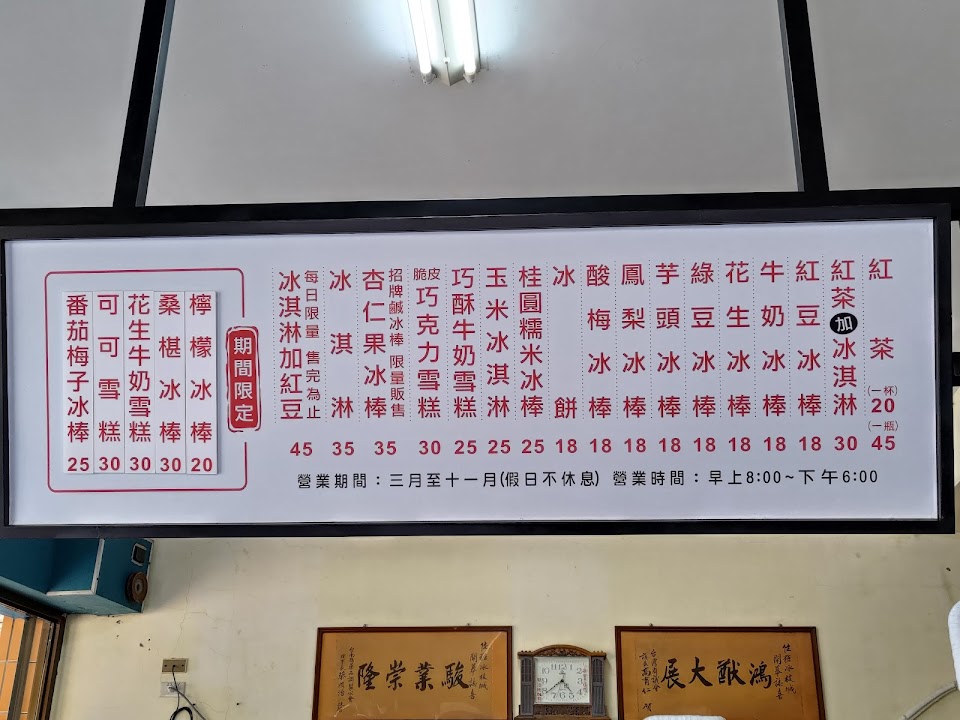 紅茶 (一杯) 20 (一瓶) 45
紅茶加冰淇淋 30
紅豆冰棒 18
牛奶冰棒 18
花生冰棒 18
綠豆冰棒 18
芋頭冰棒 18
鳳梨冰棒 18
酸梅冰棒 18
冰餅 18
桂圓糯米冰棒 25
玉米冰淇淋 25
巧酥牛奶雪糕 25
脆皮巧克力雪糕 30
招牌鹹冰棒 限量販售
杏仁果冰棒 35
冰淇淋 35
每日限量 售完為止
冰淇淋加紅豆 45
期間限定
檸檬冰棒 20
桑椹冰棒 30
花生牛奶雪糕 30
可可雪糕 30
番茄梅子冰棒 25
營業期間：三月至十一月(假日不休息) 營業時間：早上8:00~下午6:00
駿業崇隆
鴻猷大展